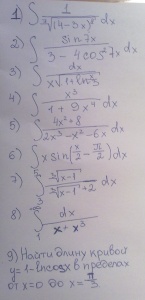 1) ∫ 1/∛(4-3x)² dx
2) ∫ sin7x/(3-4cos²7x) dx
3) ∫ dx/(x√(1+ln²x))
4) ∫ x³/(1+9x⁴) dx
5) ∫ (4x²+8)/(2x³-x²-6x) dx
6) ∫ x sin(x/2 - π/2) dx
7) ∫ dx
8) ∫ dx/(x+x³)
9) Найти длину кривой
y=1-lncosx в пределах
от x=0 до x=π/3